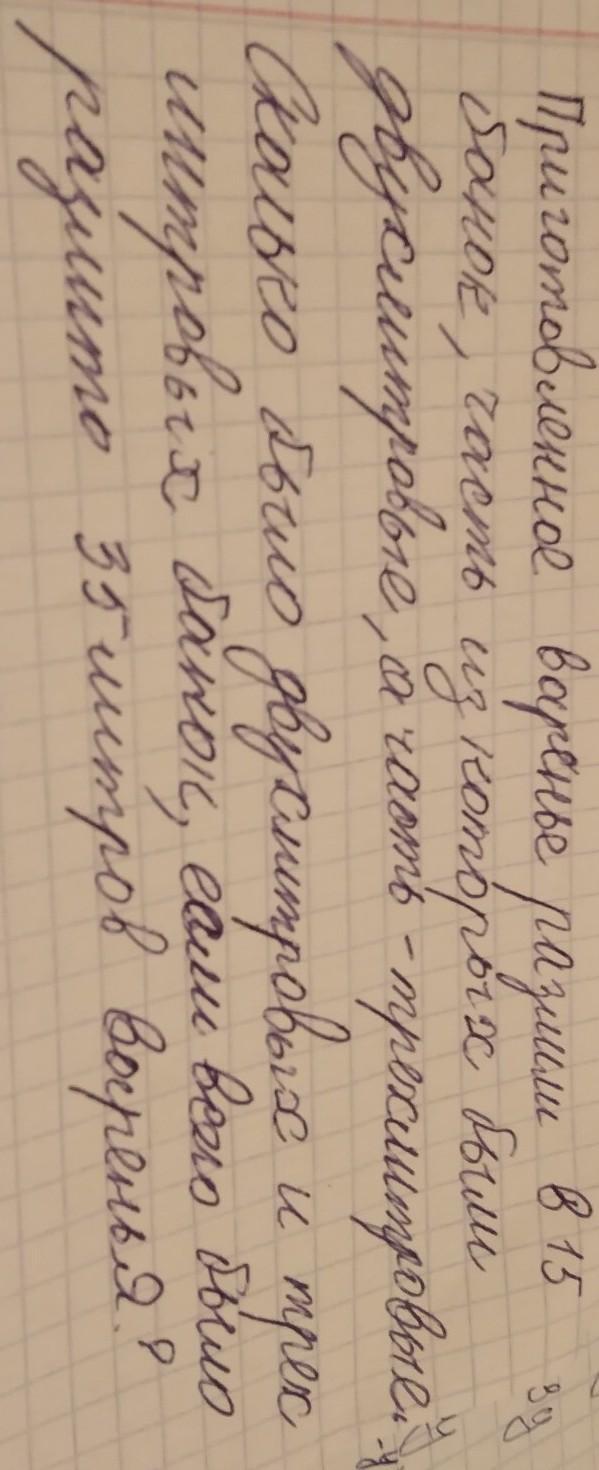 Приготовленное варенье разлили в 15
банок, часть из которых были
двухлитровые, а часть - трехлитровые.
Сколько было двухлитровых и трех
литровых банок, если всего было
разлито 35 литров варенья?